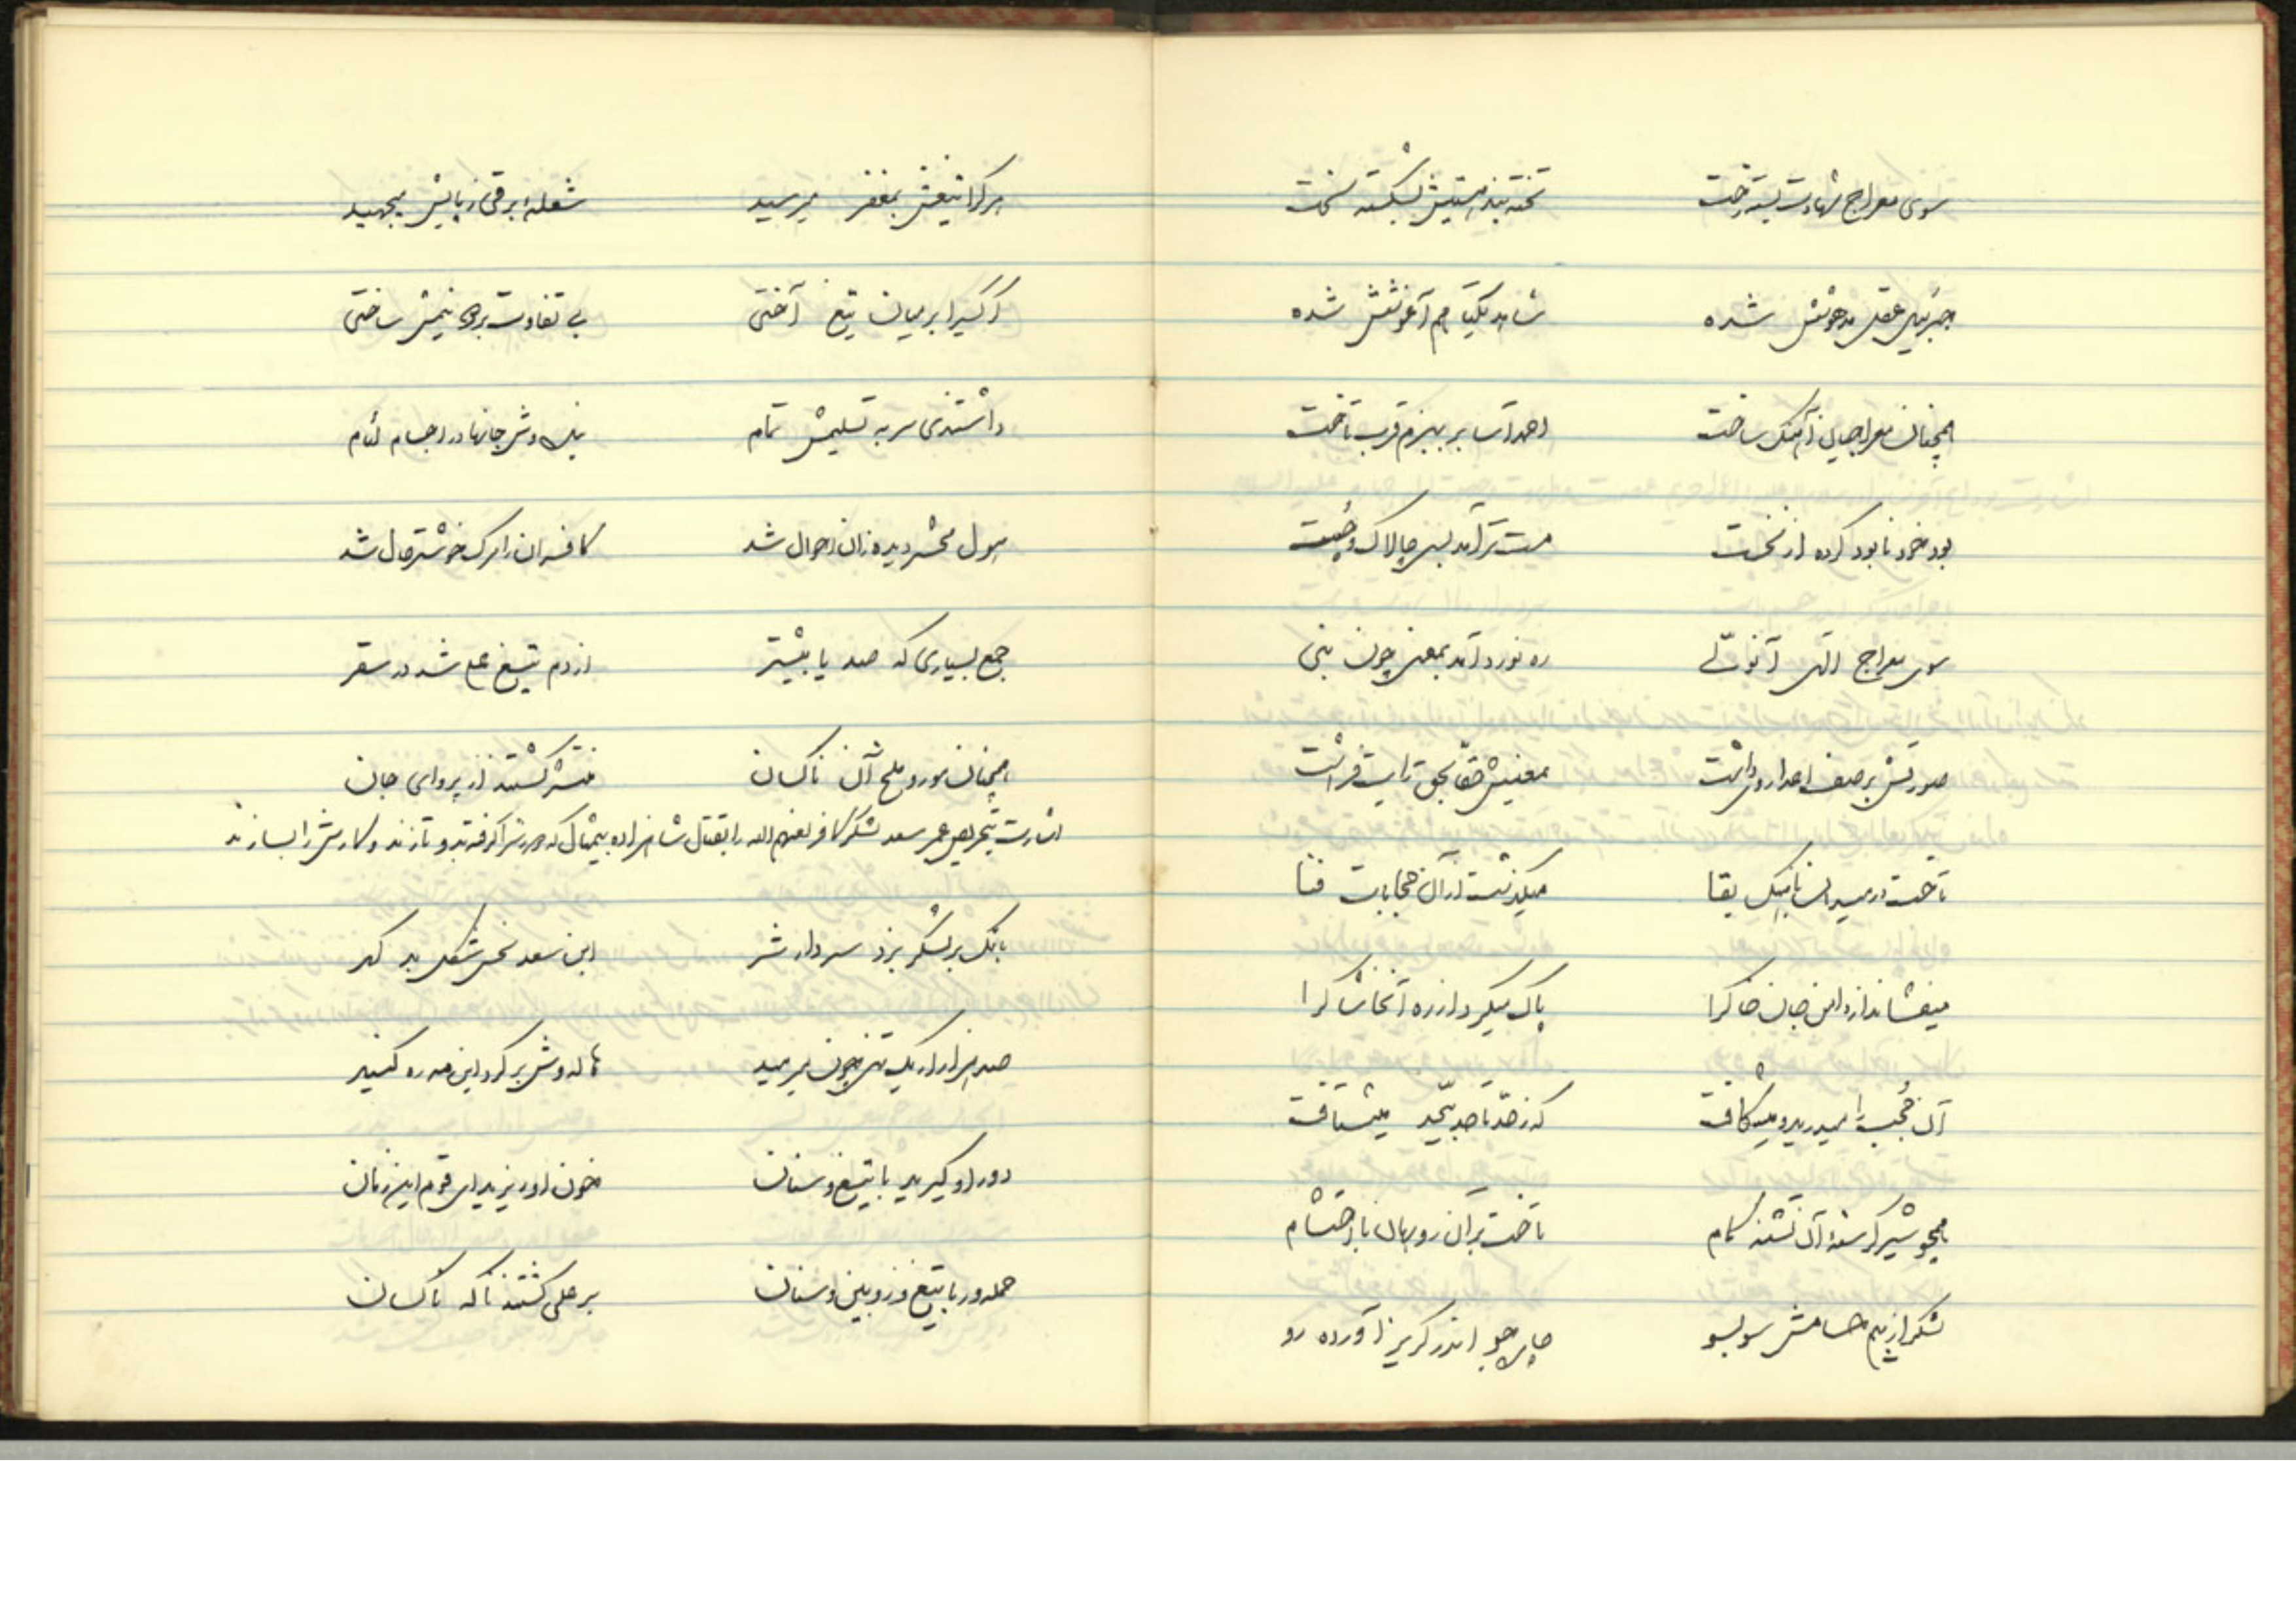 سوی معراج شهادت بست رخت تخته بند هستیش بشکست سخت
جبرئیل عقل مدهوشش شده شاهد یکتا هم آغوشش شده
همچنان معراجیان آهنگ ساخت احمد آسا بر ببزم قرب تاخت
بود خود نابود کرده از نخست مست‌تر آمد بسی چالاک و چست
سوی معراج الهی آنولی ره نورد آمد بمعنی چون نبی
صورتش بر صف اعدا رو داشت معنیش حقا بحق رایت فراشت
تاخت در میدان باهنگ بقا میگذشت از آن حجابات فنا
میفشاند از دامن جان خاکرا پاک میکرد از ره آنخاشاکرا
آن حُجب را میدرید و میشکافت که ز حد تا حد بیحد میشتافت
همچو شیر گرسنه آن تشنه کام تاخت بر آن روبهان با احتشام
لشکر از بیم حسامش سو بسو چاره جو اندر گریز آورده رو
هر کرا تیغش بمغفر میرسید شعلهٔ برقی ز پایش میجهید
ار کسیرا بر میان تیغ آختی بی تفاوت بر دو نیمش ساختی
داشتندی سر به تسلیمش تمام نیک و شر جانها در اجسام لئام
هول محشر دیده زان احوال شد کافران را مرگ خوشتر حال شد
جمع بسیاری که صد یا بیشتر از دم تیغ علی شد در سقر
همچنان مور و ملخ آن ناکسان منتشر گشتند از پروای جان
اشارت بتحریص عمر سعد لشکر کافر لعنهم الله را بقتال شاهزاده بیمثال که دورش را گرفته بر او تازند و کارش را بسازند
بانگ بر لشکر بزد سردار شر ابن سعد نحس شکل بد گهر
صد هزار از یک تن چون میرمید هاله‌وش بر گرد این مه ره کنید
دور او گیرید با تیغ و سنان خون او ریزید ای قوم این زمان
حمله‌ور با تیغ و زوبین و سنان بر علی گشتند ناگه ناکسان